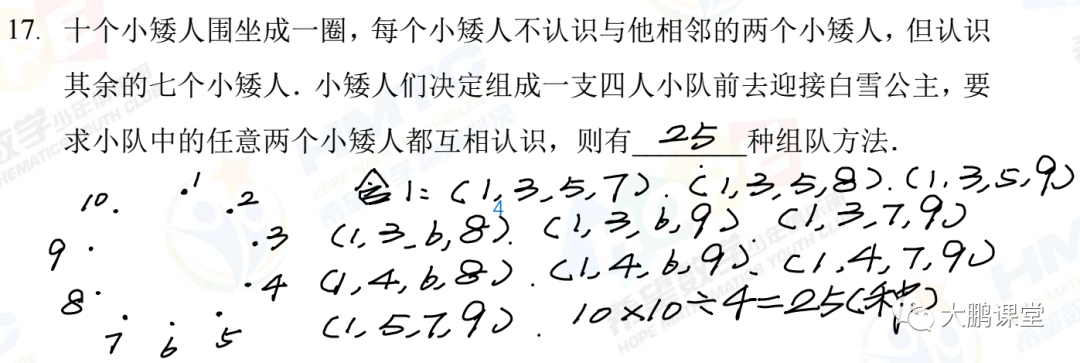 17. 十个小矮人围坐成一圈，每个小矮人不认识与他相邻的两个小矮人，但认识
其余的七个小矮人．小矮人们决定组成一支四人小队前去迎接白雪公主，要
求小队中的任意两个小矮人都互相认识，则有 25 种组队方法．
含1：(1,3,5,7). (1,3,5,8). (1,3,5,9)
(1,3,6,8). (1,3,6,9). (1,3,7,9)
(1,4,6,8). (1,4,6,9). (1,4,7,9)
(1,5,7,9). 10×10÷4=25(种)
10 1 2
9 3
8 4
7 6 5
4
大鹏课堂